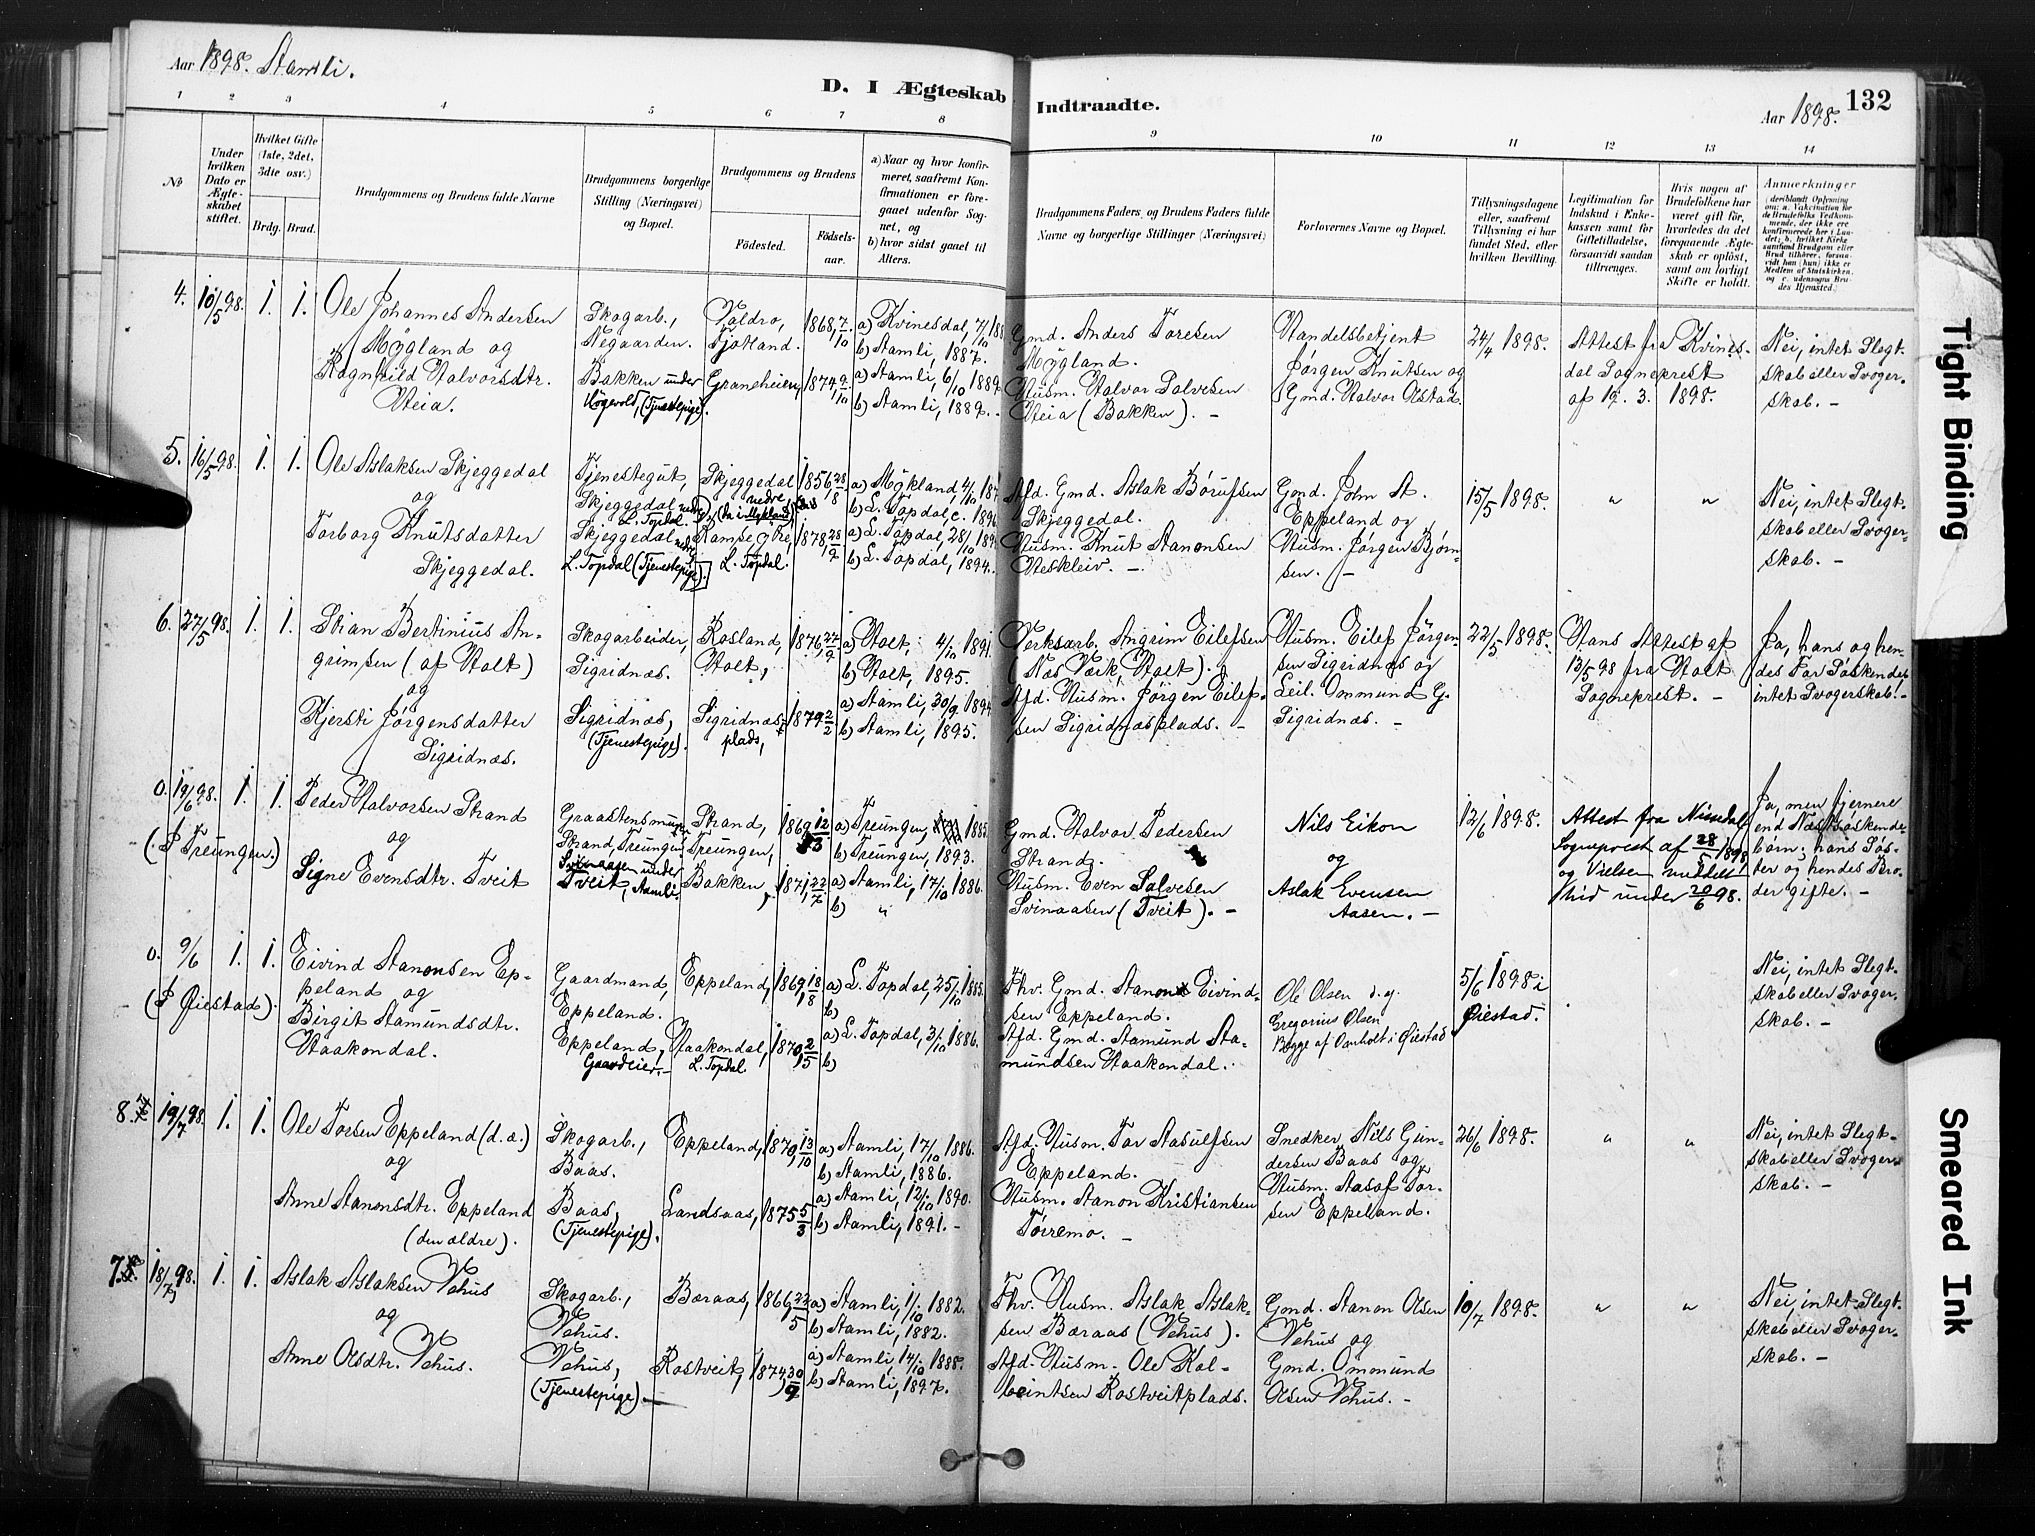 Aar 1898. Aamli.
D. I Ægteskab Indtraadte.
Aar 1898.
132
1 2 3 4 5 6 7 8 9 10 11 12 13 14
No
Under hvilken Dato er Ægteskabet stiftet.
Hvilket Gifte (1ste, 2det, 3dte osv.)
Brdg. Brud.
Brudgommens og Brudens fulde Navne
Brudgommens borgerlige Stilling (Næringsvei) og Bopæl.
Brudgommens og Brudens
Fødested.
Fødselsaar.
a) Naar og hvor konfirmeret, saafremt Konfirmationen er foregaaet udenfor Sognet, og
b) hvor sidst gaaet til Alters.
Brudgommens Faders og Brudens Faders fulde Navne og borgerlige Stillinger (Næringsvei)
Forlovernes Navne og Bopæl.
Tillysningsdagene eller, saafremt Tillysning ei har fundet Sted, efter hvilken Bevilling.
Legitimation for Indskud i Enkekassen samt for Giftetilladelse, forsaavidt saadan tiltrænges.
Hvis nogen af Brudefolkene har været gift før, hvorledes da det foregaaende Ægteskab er opløst, samt om lovligt Skifte er holdt.
Anmærkninger (deriblandt Oplysning om: a. Vakcination for de Brudefolks Vedkommende, der ikke ere konfirmerede her i Landet; b. hvilket Kirkesamfund Brudgom eller Brud tilhører, forsaavidt han (hun) ikke er Medlem af Statskirken, og c. udensogns Brudes Hjemsted.)
4. 10/5 98. 1. 1. Ole Johannes Andersen
Mygland og
Ragnhild Halvorsdtr.
Heia.
Skogarb.,
Negaarden.
Bakken under
(Tjenestepige).
Fjotland.
Graneheien,
1868, 7/10.
1874, 9/10
a) Kvinesdal,
b) Aamli, 1887.
a) Aamli, 6/10 1889.
b) Aamli, 1889. -
Gmd. Anders Toresen
Mygland.
Husm. Halvor Salvesen
Heia (Bakken). -
Handelsbetjent
Jørgen Knutsen og
Gmd. Halvor Olstad.
24/4 1898.
Attest fra Kvines-
dal Sogneprest
af 19. 3. 1898.
Nei, intet Slegt-
skab eller Svoger-
skab. -
5. 16/5 98. 1. 1. Ole Aslaksen Skjeggedal
og
Torborg Knutsdatter
Skjeggedal.
Tjenestegut,
Skjeggedal nedre,
L. Topdal.
Skjeggedal nedre
L. Topdal (Tjenestepige).
Skjeggedal
nedre,
Ramse øvre,
L. Topdal.
1856, 28/8
1878, 28/9
a) Mykland, 4/10
b) L. Topdal,
a) L. Topdal, 28/10
b) L. Topdal, 1894.
Afd. Gmd. Aslak Børufsen
Skjeggedal.
Husm. Knut Aanonsen
Heskleiv. -
Gmd. John A.
Eppeland og
Husm. Jørgen Bjørn-
sen. -
15/5 1898.
" "
Nei, intet Slegt-
skab eller Svoger-
skab. -
6. 27/5 98. 1. 1. Stian Bertinius An-
grimsen (af Holt)
og
Kjersti Jørgensdatter
Sigridnæs.
Skogarbeider,
Sigridnæs.
Sigridnæs,
(Tjenestepige).
Rosland,
Holt,
Sigridnæs-
plads,
1876, 27/9
1879, 2/2
a) Holt, 4/10 1891.
b) Holt, 1895.
a) Aamli, 30/9 1894.
b) Aamli, 1895.
Verksarb. Angrim Eilefsen
(Næs Verk, Holt).
Afd. Husm. Jørgen Eilef-
sen Sigridnæsplads. -
Husm. Eilef Jørgen-
sen Sigridnæs og
Leil. Ommund G.
Sigridnæs. -
22/5 1898.
Hans Attest af
13/5 98 fra Holt
Sogneprest. -
Ja, hans og hen-
des Far Søskende;
intet Svogerskab. -
0. 19/6 98. 1. 1. Peder Halvorsen Strand
(I Treungen.)
og
Signe Evensdtr. Tveit
Graastensmurer
Strand, Treungen
Svinaasen under
Tveit, Aamli.
Strand,
Treungen,
Bakken,
1869, 12/3
1871, 22/7
a) Treungen, 1885.
b) Treungen, 1893.
a) Aamli, 17/10 1886.
b) "
Gmd. Halvor Pedersen
Strand.
Husm. Even Salvesen
Svinaasen (Tveit). -
Nils Eikon
og
Aslak Evensen
Aasen. -
12/6 1898.
Attest fra Nissedal
Sogneprest af 28/5 1898,
og Vielsen meddelt
hid under 20/6 98.
Ja, men fjernere
end Næstsøskende-
børn; hans Søs-
ter og hendes Bro-
der gifte. -
0. 9/6 1. 1. Eivind Aanonsen Ep-
(I Øiestad).
peland og
Birgit Aamundsdtr.
Haakondal.
Gaardmand,
Eppeland.
Eppeland,
Gaardeier. -
Eppeland,
Haakondal,
L. Topdal
1869, 18/8
1870, 2/5
a) L. Topdal, 25/10 1885.
b)
a) L. Topdal, 3/10 1886.
b)
Fhv. Gmd. Aanon Eivind-
sen Eppeland.
Afd. Gmd. Aamund Aa-
mundsen Haakondal.
Ole Olsen o. g.
Gregorius Olsen
Begge af Vanholt i Øiestad
5/6 1898 i
Øiestad.
Nei, intet Slegt-
skab eller Svoger-
skab. -
8. 19/7 98. 1. 1. Ole Torsen Eppeland (d. æ.)
og
Anne Aanonsdtr. Eppeland
(den ældre).
Skogarb.,
Baas.
Baas,
(Tjenestepige).
Eppeland,
Landsaas,
1870, 13/10
1875 5/3
a) Aamli, 17/10 1886.
b) Aamli, 1886.
a) Aamli, 12/10 1890.
b) Aamli, 1891. -
Afd. Husm. Tor Aasulfsen
Eppeland.
Husm. Aanon Kristiansen
Tørremo. -
Snedker Nils Gun-
dersen Baas og
Husm. Aasof Tor-
sen Eppeland.
26/6 1898.
" "
Nei, intet Slegt-
skab eller Svoger-
skab. -
7. 18/7 98. 1. 1. Aslak Aslaksen Vehus
og
Anne Olsdtr. Vehus.
Skogarb.,
Vehus.
Vehus,
(Tjenestepige). -
Bæraas,
Rostveit,
1866, 22/5
1874, 30/9
a) Aamli, 1/10 1882.
b) Aamli, 1882.
a) Aamli, 14/10 1888.
b) Aamli, 1897.
Fhv. Husm. Aslak Aslak-
sen Bæraas (Vehus).
Afd. Husm. Ole Kol-
beintsen Rostveitplads.
Gmd. Aanon Olsen
Vehus og
Gmd. Ommund
Olsen Vehus. -
10/7 1898.
" "
Nei, intet Slegt-
skab eller Svoger-
skab. -
Tight Binding
Smeared Ink